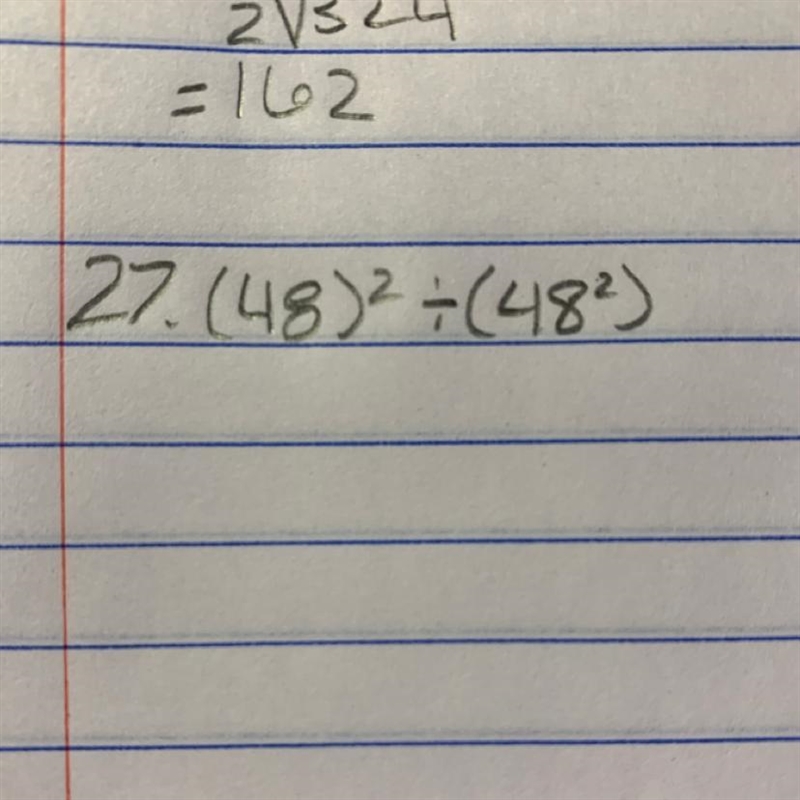 2√324
=162
27. (48)² ÷ (48²)